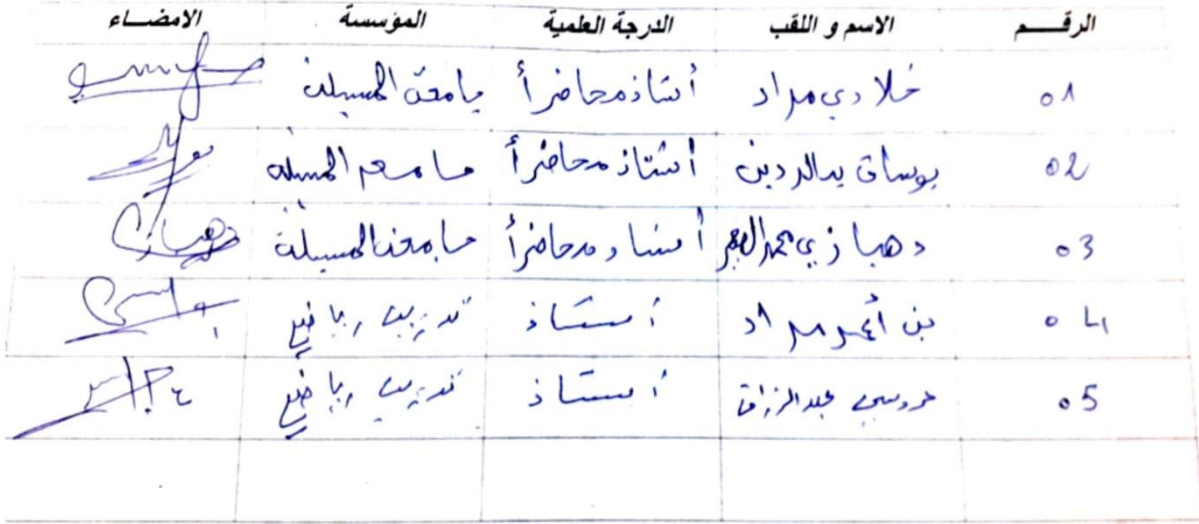 الرقـــم الاسم و اللقب الدرجة العلمية المؤسسة الامضـــاء
01 خلادي مراد أستاذ محاضر أ جامعة المسيلة
02 بوساق بدالردين أستاذ محاضر أ جامعة المسيلة
03 دهبازي محمد الصغير أستاذ محاضر أ جامعة المسيلة
04 بن أعمر مراد أستاذ تدريب رياضي
05 عروسي عبد الرزاق أستاذ تدريب رياضي